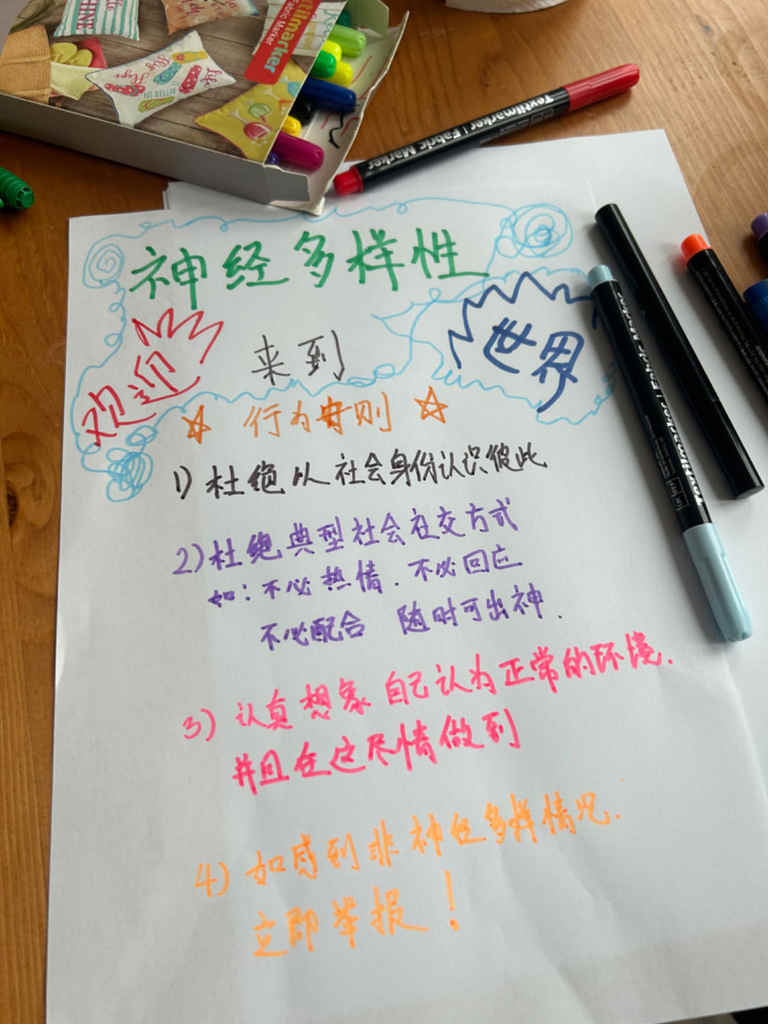 Textilmarker
Fabric Marker
Textilmarker | Fabric Marker
神经多样性
欢迎 来到 世界
☆ 行为守则 ☆
1) 杜绝从社会身份认识彼此
2) 杜绝典型社会社交方式
如：不必热情．不必回应
不必配合 随时可出神．
3) 认真想象自己认为正常的环境．
并且在这尽情做到
4) 如感到非神经多样情况．
立即举报！